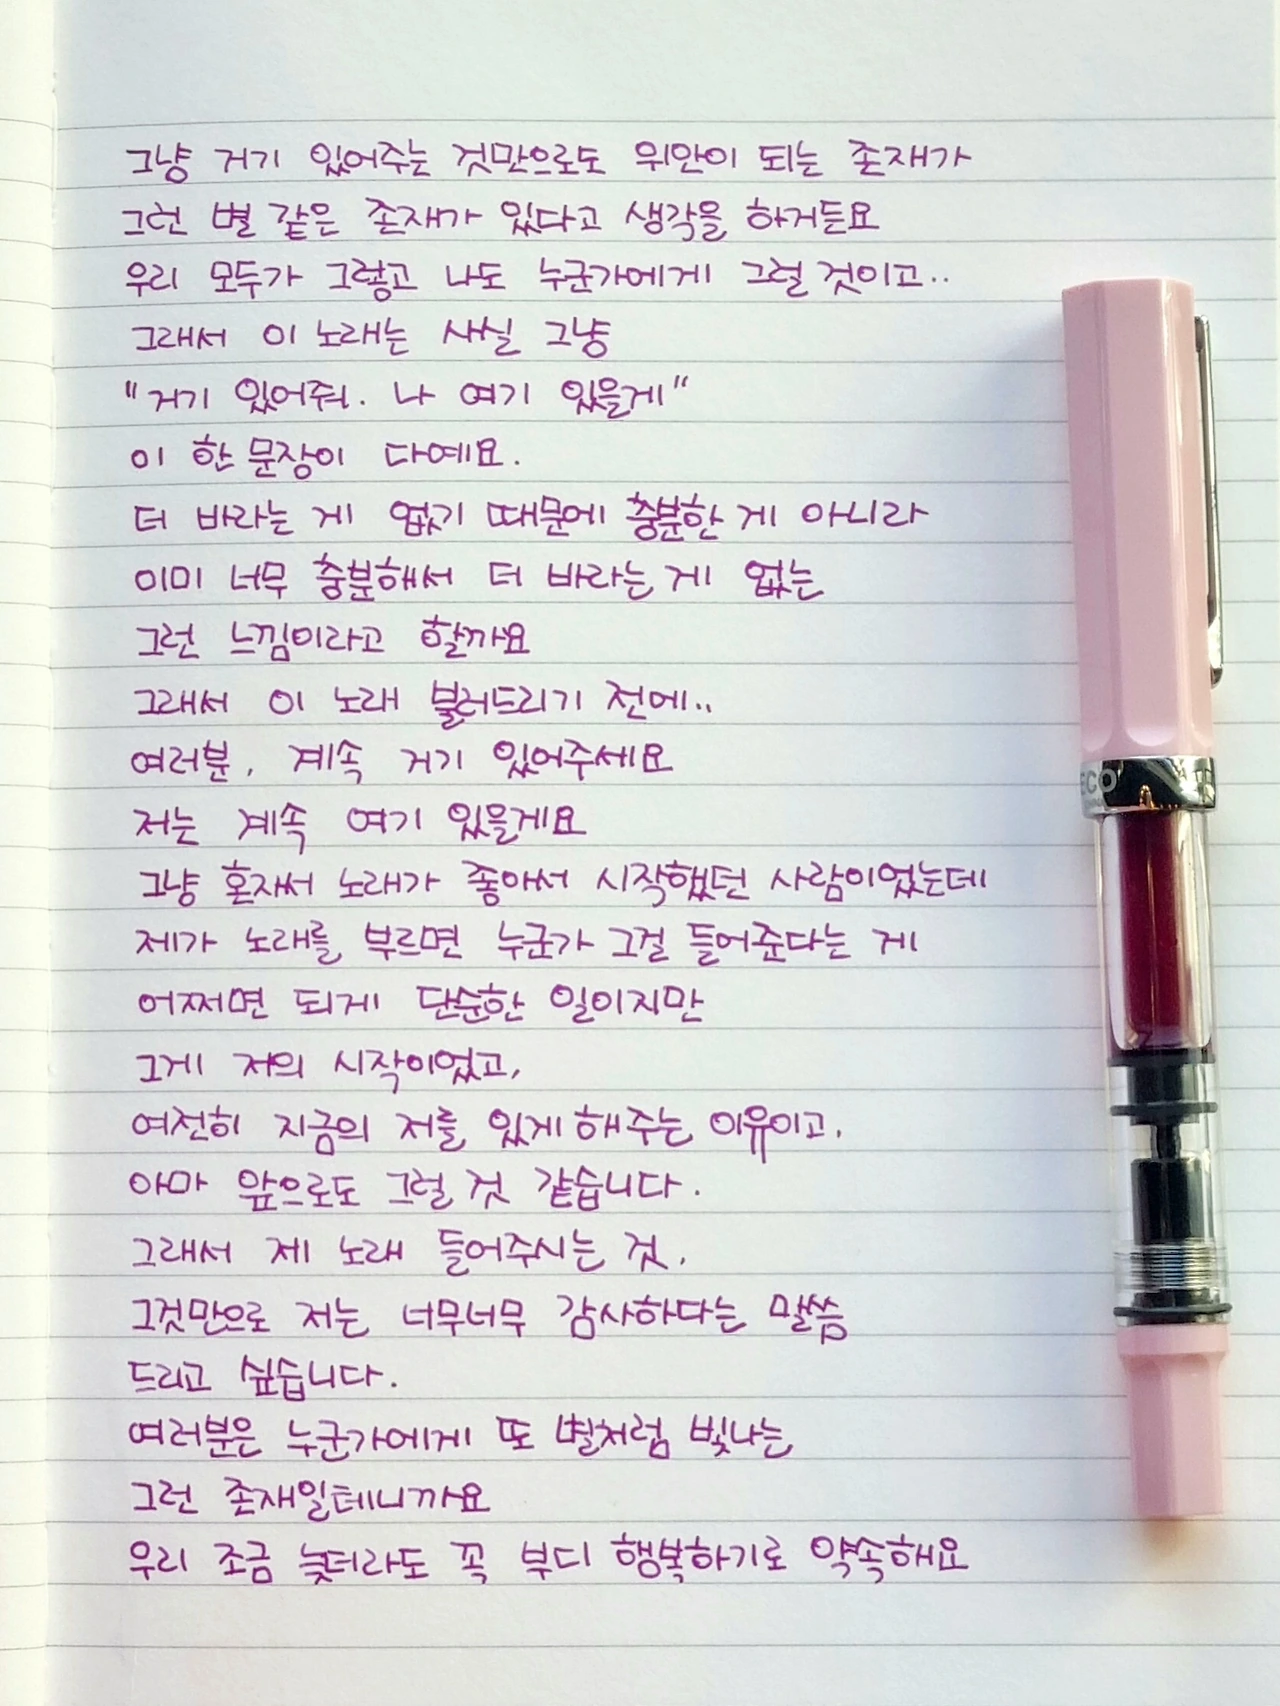 그냥 거기 있어주는 것만으로도 위안이 되는 존재가
그런 별 같은 존재가 있다고 생각을 하거든요
우리 모두가 그렇고 나도 누군가에게 그럴 것이고..
그래서 이 노래는 사실 그냥
"거기 있어줘. 나 여기 있을게"
이 한 문장이 다예요.
더 바라는 게 없기 때문에 충분한 게 아니라
이미 너무 충분해서 더 바라는 게 없는
그런 느낌이라고 할까요
그래서 이 노래 불러드리기 전에..
여러분, 계속 거기 있어주세요
저는 계속 여기 있을게요
그냥 혼자서 노래가 좋아서 시작했던 사람이었는데
제가 노래를 부르면 누군가 그걸 들어준다는 게
어쩌면 되게 단순한 일이지만
그게 저의 시작이었고,
여전히 지금의 저를 있게 해주는 이유이고,
아마 앞으로도 그럴 것 같습니다.
그래서 제 노래 들어주시는 것,
그것만으로 저는 너무너무 감사하다는 말씀
드리고 싶습니다.
여러분은 누군가에게 또 별처럼 빛나는
그런 존재일테니까요
우리 조금 늦더라도 꼭 부디 행복하기로 약속해요
ECO